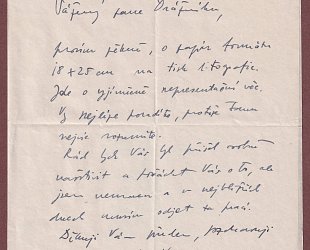 Vážený pane Drážníku,
prosím pěkně, o papír formátu
18 x 25 cm na
tisk litografie.
Jde o výjimečně representační věc.
Vy nejlépe poradíte, protože tomu
nejvíc rozumíte.
Rád bych Vás byl přišel osobně
navštívit a požádat Vás o to, ale
jsem nemocen a v nejbližších
dnech musím odjet za prací.
Děkuji Vám předem, pozdravuji